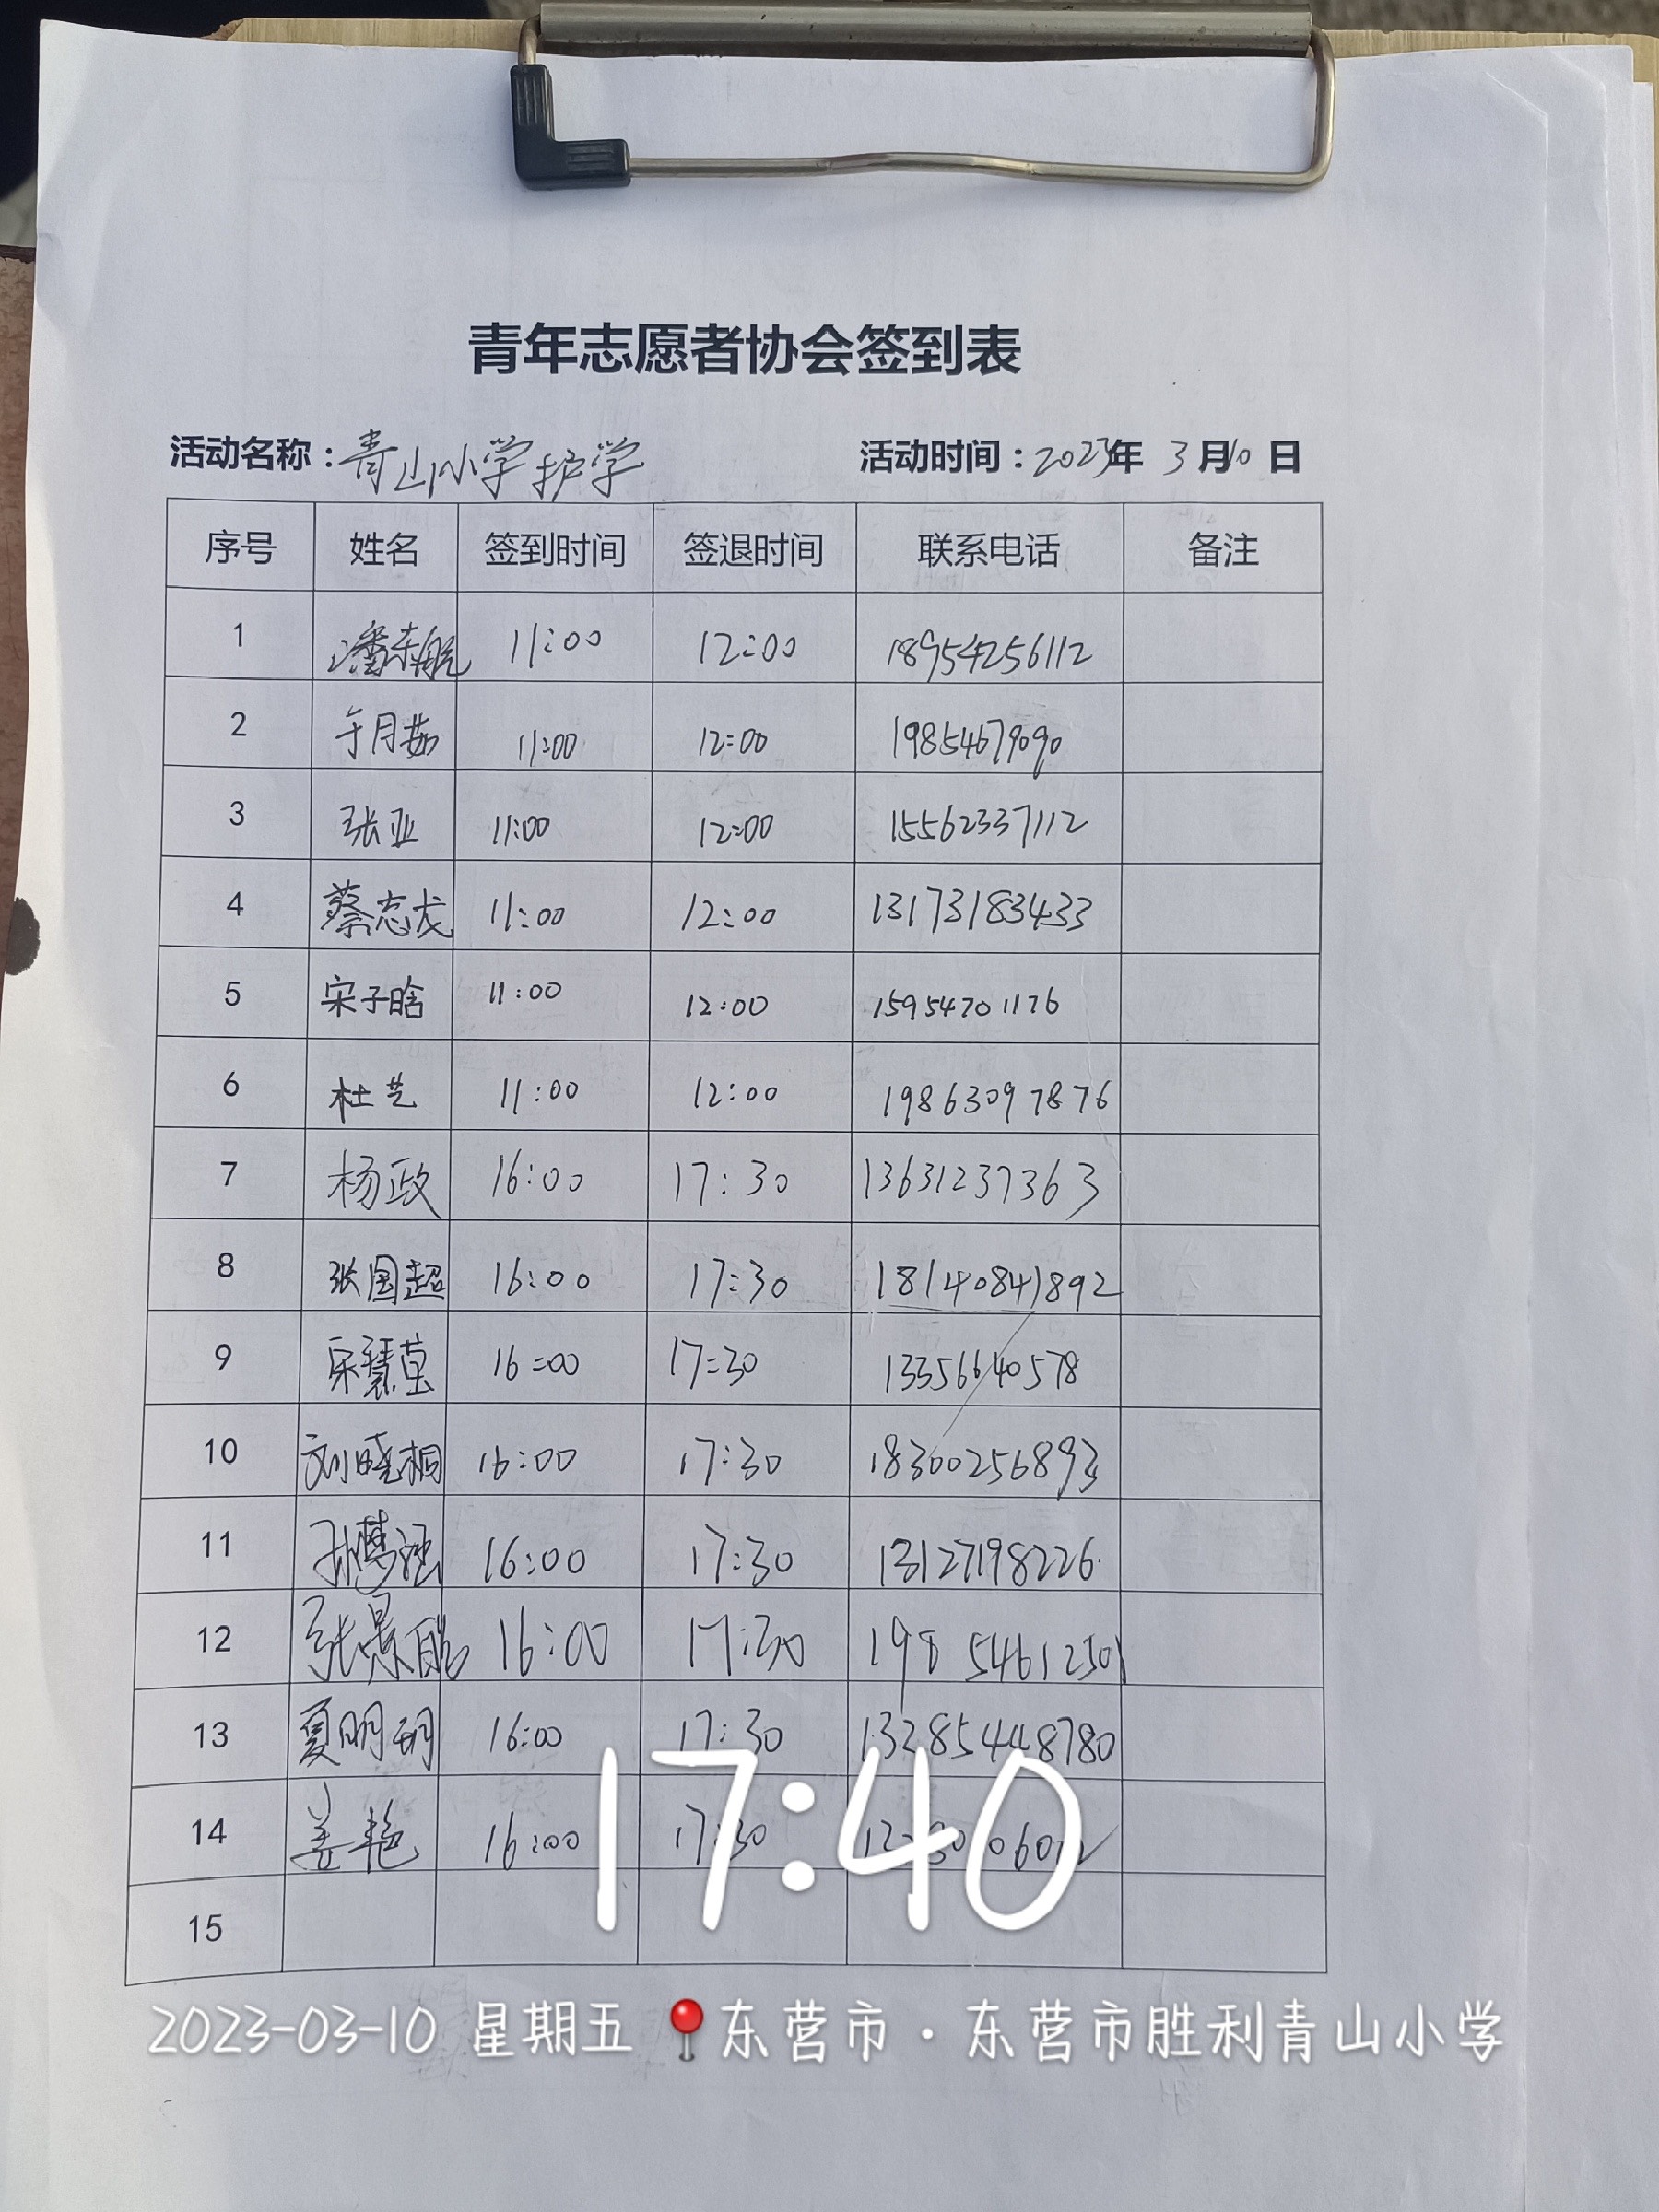 青年志愿者协会签到表
活动名称：青山小学护学 活动时间：2023年 3月10日
序号 姓名 签到时间 签退时间 联系电话 备注
1 潘东航 11:00 12:00 18954256112
2 于月茹 11:00 12:00 19854679090
3 张亚 11:00 12:00 15562337112
4 蔡志成 11:00 12:00 13173183433
5 宋子晗 11:00 12:00 15954701176
6 杜艺 11:00 12:00 19863097876
7 杨政 16:00 17:30 13631237363
8 张国超 16:00 17:30 18140841892
9 宋慧莹 16:00 17:30 13356640578
10 刘晓桐 16:00 17:30 18300256893
11 16:00 17:30 13127198226
12 张景皓 16:00 17:30 19854612501
13 夏明玥 16:00 17:30 13285448780
14 姜艳 16:00 17:30
15
17:40
2023-03-10 星期五 东营市·东营市胜利青山小学